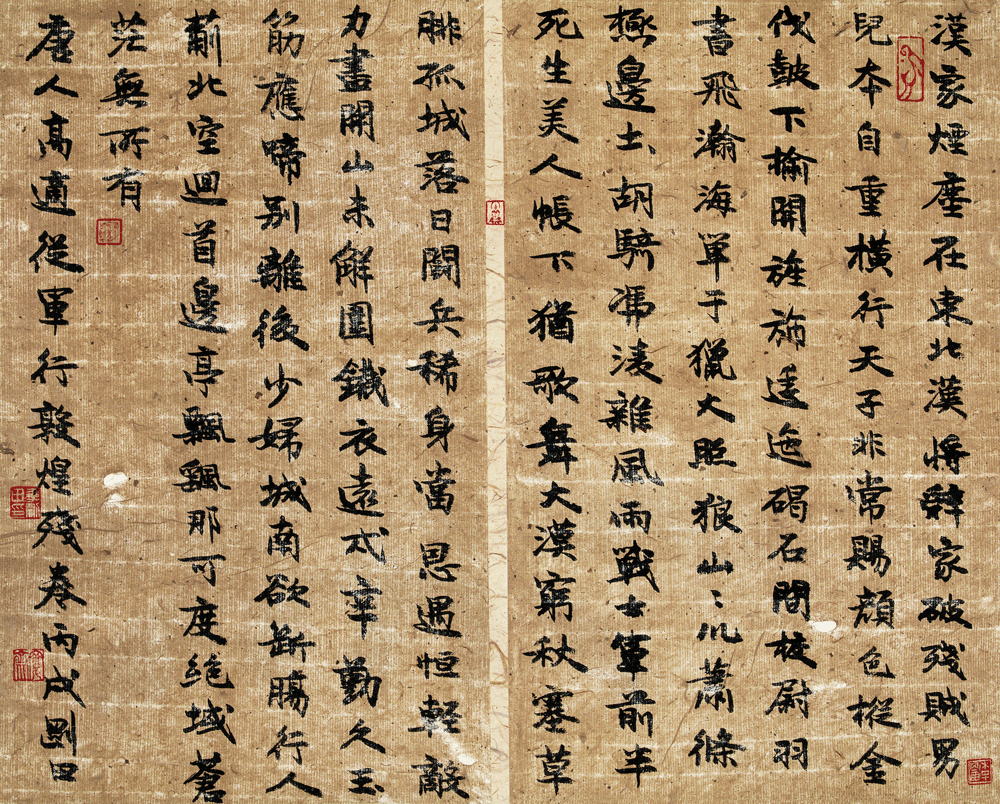 漢家煙塵在東北漢將辭家破殘賊男
兒本自重橫行天子非常賜顏色樅金
伐皷下榆開旌旆逶迤碣石間校尉羽
書飛瀚海單于獵火照狼山〻川蕭條
極邊土胡騎馮淩雜風雨戰士軍前半
死生美人帳下猶歌舞大漠窮秋塞草
腓孤城落日鬪兵稀身當恩遇恒輕敵
力盡開山未解圍鐵衣遠戎辛勤久玉
筋應啼別離後少婦城南欲斷腸行人
薊北空迴首邊亭飄飄那可度絕域蒼
茫無所有
唐人高適從軍行敦煌殘卷丙戌